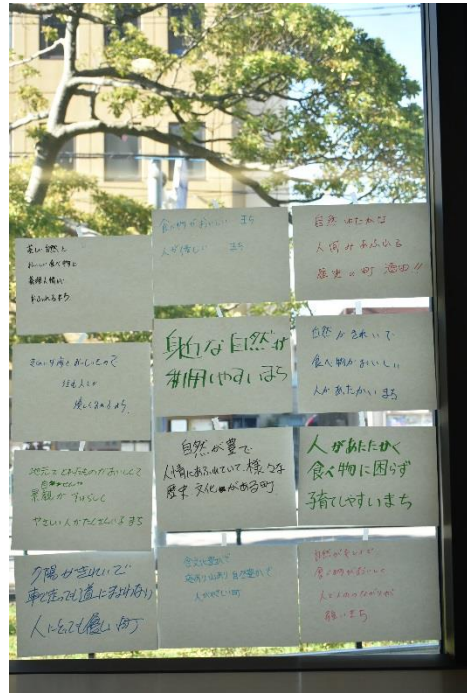 美しい自然と
おいしい食べ物と
人情が
あふれるまち
食べ物がおいしい まち
人が優しい まち
自然ゆたかな
人情味あふれる
歴史の町 酒田!!
きれいな海とおいしいもので
住む人々が
まち
身近な自然が
利用しやすいまち
自然がきれいで
食べ物がおいしい
人があたたかい まち
地元でとれるものがおいしくて
景観がすばらしく
やさしい人がたくさんいるまち
自然が豊で
人情にあふれていて、様々な
歴史 文化がある町
人があたたかく
食べ物に困らず
子育てしやすいまち
夕陽がきれいで
車で走っても道にまよわない
人にとっても優しい町
食文化豊かで
海あり山あり自然豊かで
人がやさしい町
自然がキレイで
食べ物がおいしくて
人と人のつながりが
強いまち